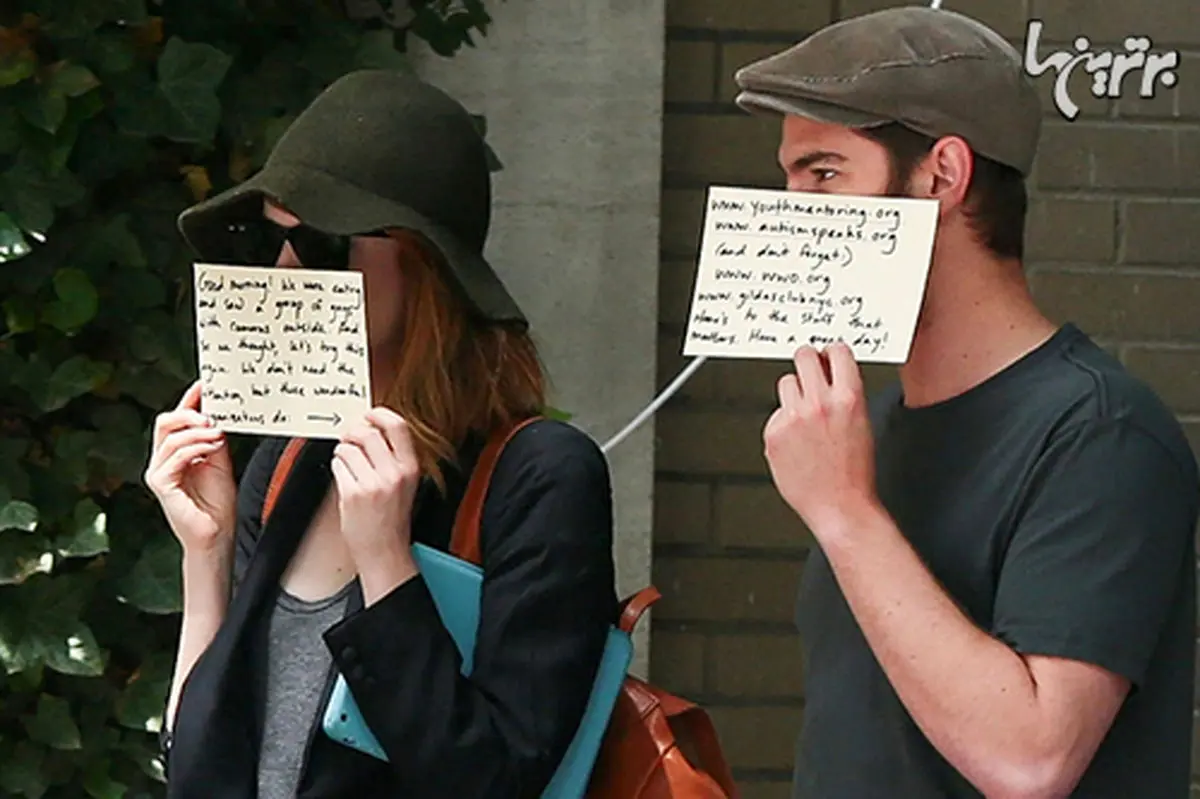 Good morning! We were eating
and saw a group of guys
with cameras outside. And
so we thought, let's try this
again. We don't need the
attention, but these wonderful
organizations do: →
www.youthmentoring.org
www.autismspeaks.org
(and don't forget:)
www.wwo.org
www.gildasclubnyc.org
Here's to the stuff that
matters. Have a great day!
برترین ها